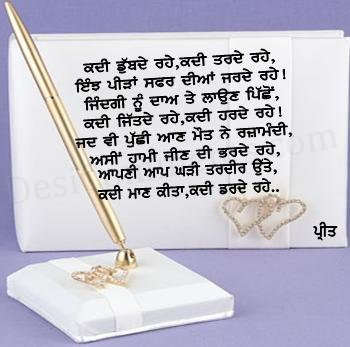 ਕਦੀ ਡੁੱਬਦੇ ਰਹੇ,ਕਦੀ ਤਰਦੇ ਰਹੇ,
ਇੰਝ ਪੀੜਾਂ ਸਫਰ ਦੀਆਂ ਜਰਦੇ ਰਹੇ!
ਜਿੰਦਗੀ ਨੂੰ ਦਾਅ ਤੇ ਲਾਉਣ ਪਿੱਛੋਂ,
ਕਦੀ ਜਿੱਤਦੇ ਰਹੇ,ਕਦੀ ਹਰਦੇ ਰਹੇ!
ਜਦ ਵੀ ਪੁੱਛੀ ਆਣ ਮੌਤ ਨੇ ਰਜ਼ਾਮੰਦੀ,
ਅਸੀਂ ਹਾਮੀ ਜੀਣ ਦੀ ਭਰਦੇ ਰਹੇ,
ਆਪਣੀ ਆਪ ਘੜੀ ਤਰਦੀਰ ਉੱਤੇ,
ਕਦੀ ਮਾਣ ਕੀਤਾ,ਕਦੀ ਡਰਦੇ ਰਹੇ..
ਪ੍ਰੀਤ